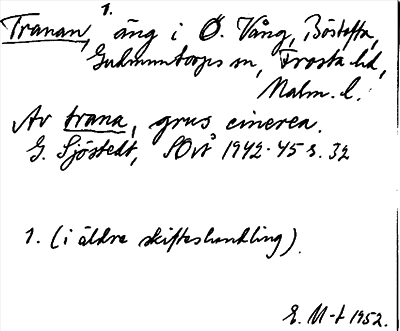 Tranan, 1. äng i Ö. Vång, Böstofta,
Gudmuntorps sn, Frosta hd,
Malm. l.
Av trana, grus cinerea.
G. Sjöstedt, SOrt 1942-45 s. 32
1. (i äldre skifteshandling).
E. M-t 1952.